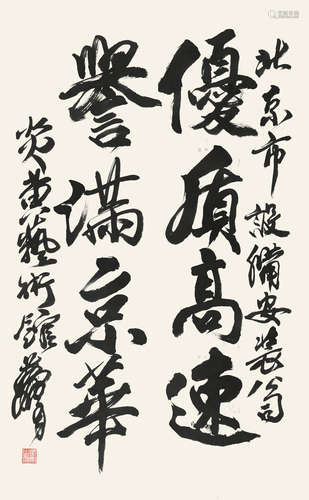 北京市設備安装公司
優质高速
譽滿京華
炎黄藝術館